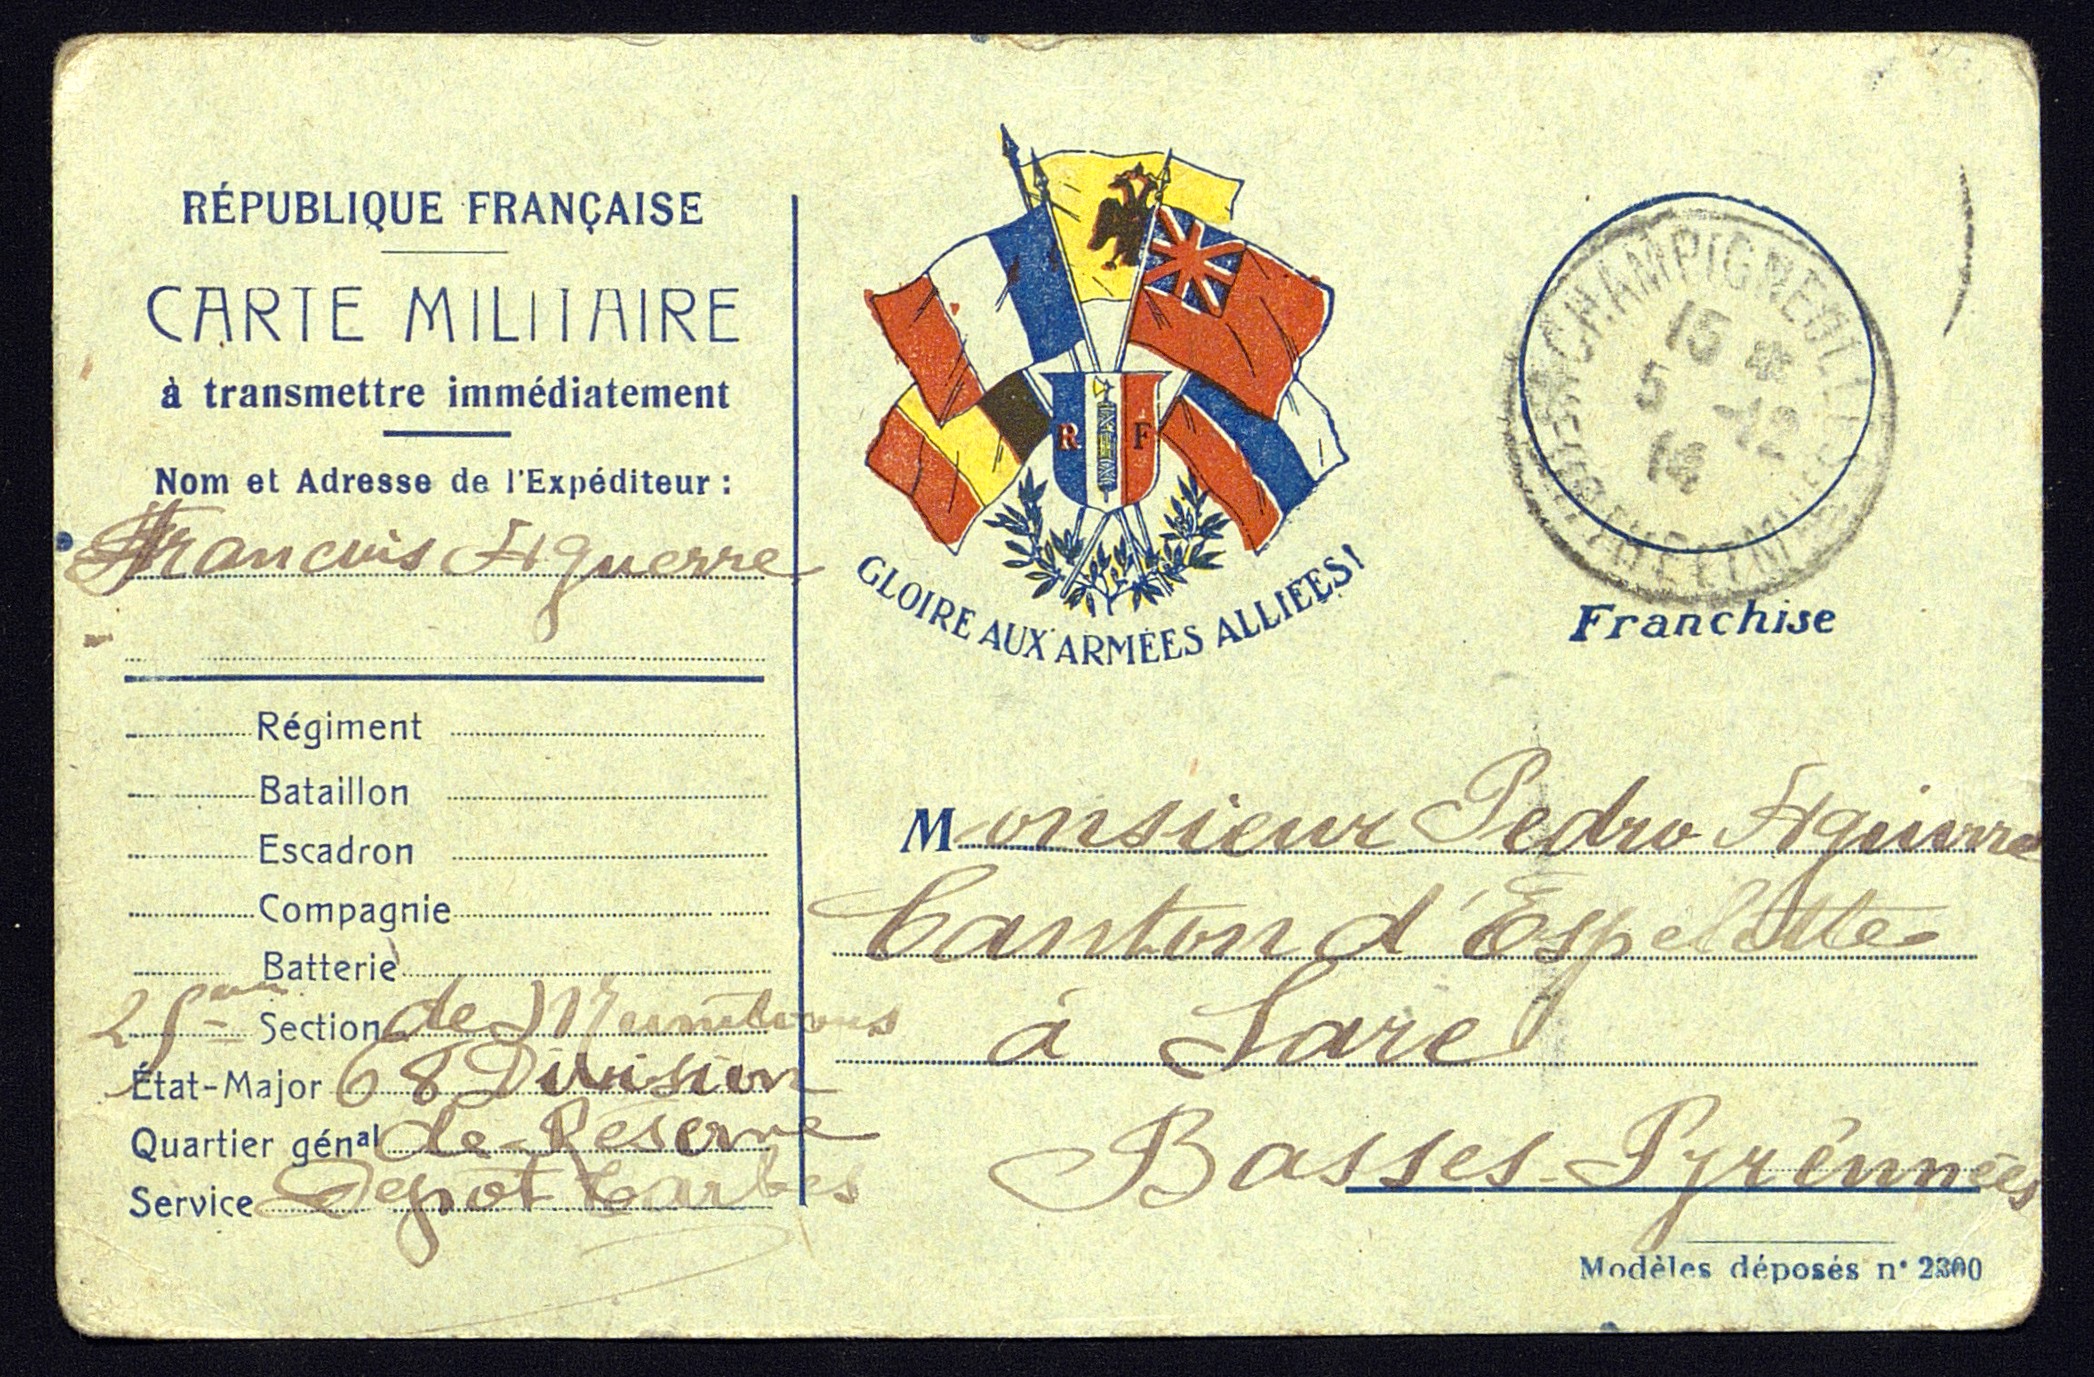 RÉPUBLIQUE FRANÇAISE
CARTE MILITAIRE
à transmettre immédiatement
Nom et Adresse de l'Expéditeur :
Francois Aguerre
Régiment
Bataillon
Escadron
Compagnie
Batterie
Section de Munitions
État-Major 68 Division
Quartier génal de Réserve
Service Depot Tarbes
R F
GLOIRE AUX ARMÉES ALLIÉES!
15 *
5 -12
14
Franchise
Monsieur Pedro Aguerre
Canton d'Espelette
à Sare
Basses-Pyrénnées
Modèles déposés n° 2300